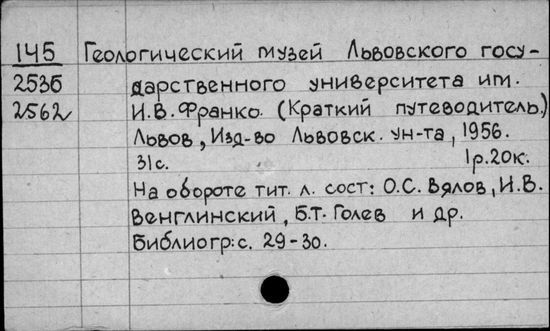 145 Геологический музей Львовского госу-
2536 дарственного университета им.
2562 И.В. Франко. (Краткий путеводитель.)
Львов, Изд-во Львовск. ун-та, 1956.
31с. 1р.20к.
На обороте тит. л. сост: О.С. Вялов, И.В.
Венглинский, Б.Т. Голев и др.
Библиогр: с. 29-30.